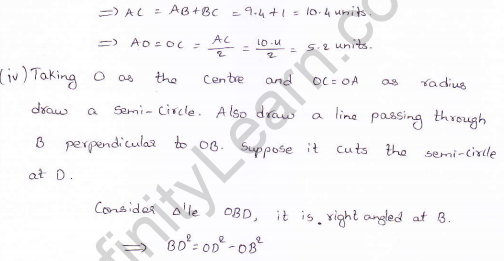 ⇒ AC = AB+BC = 9.4+1 = 10.4 units.
⇒ AO = OC = AC/2 = 10.4/2 = 5.2 units.
(iv) Taking O as the centre and OC=OA as radius
draw a semi-circle. Also draw a line passing through
B perpendicular to OB. Suppose it cuts the semi-circle
at D.
Consider Δ'le OBD, it is right angled at B.
⇒ BD² = OD² - OB²
finityLearn.com